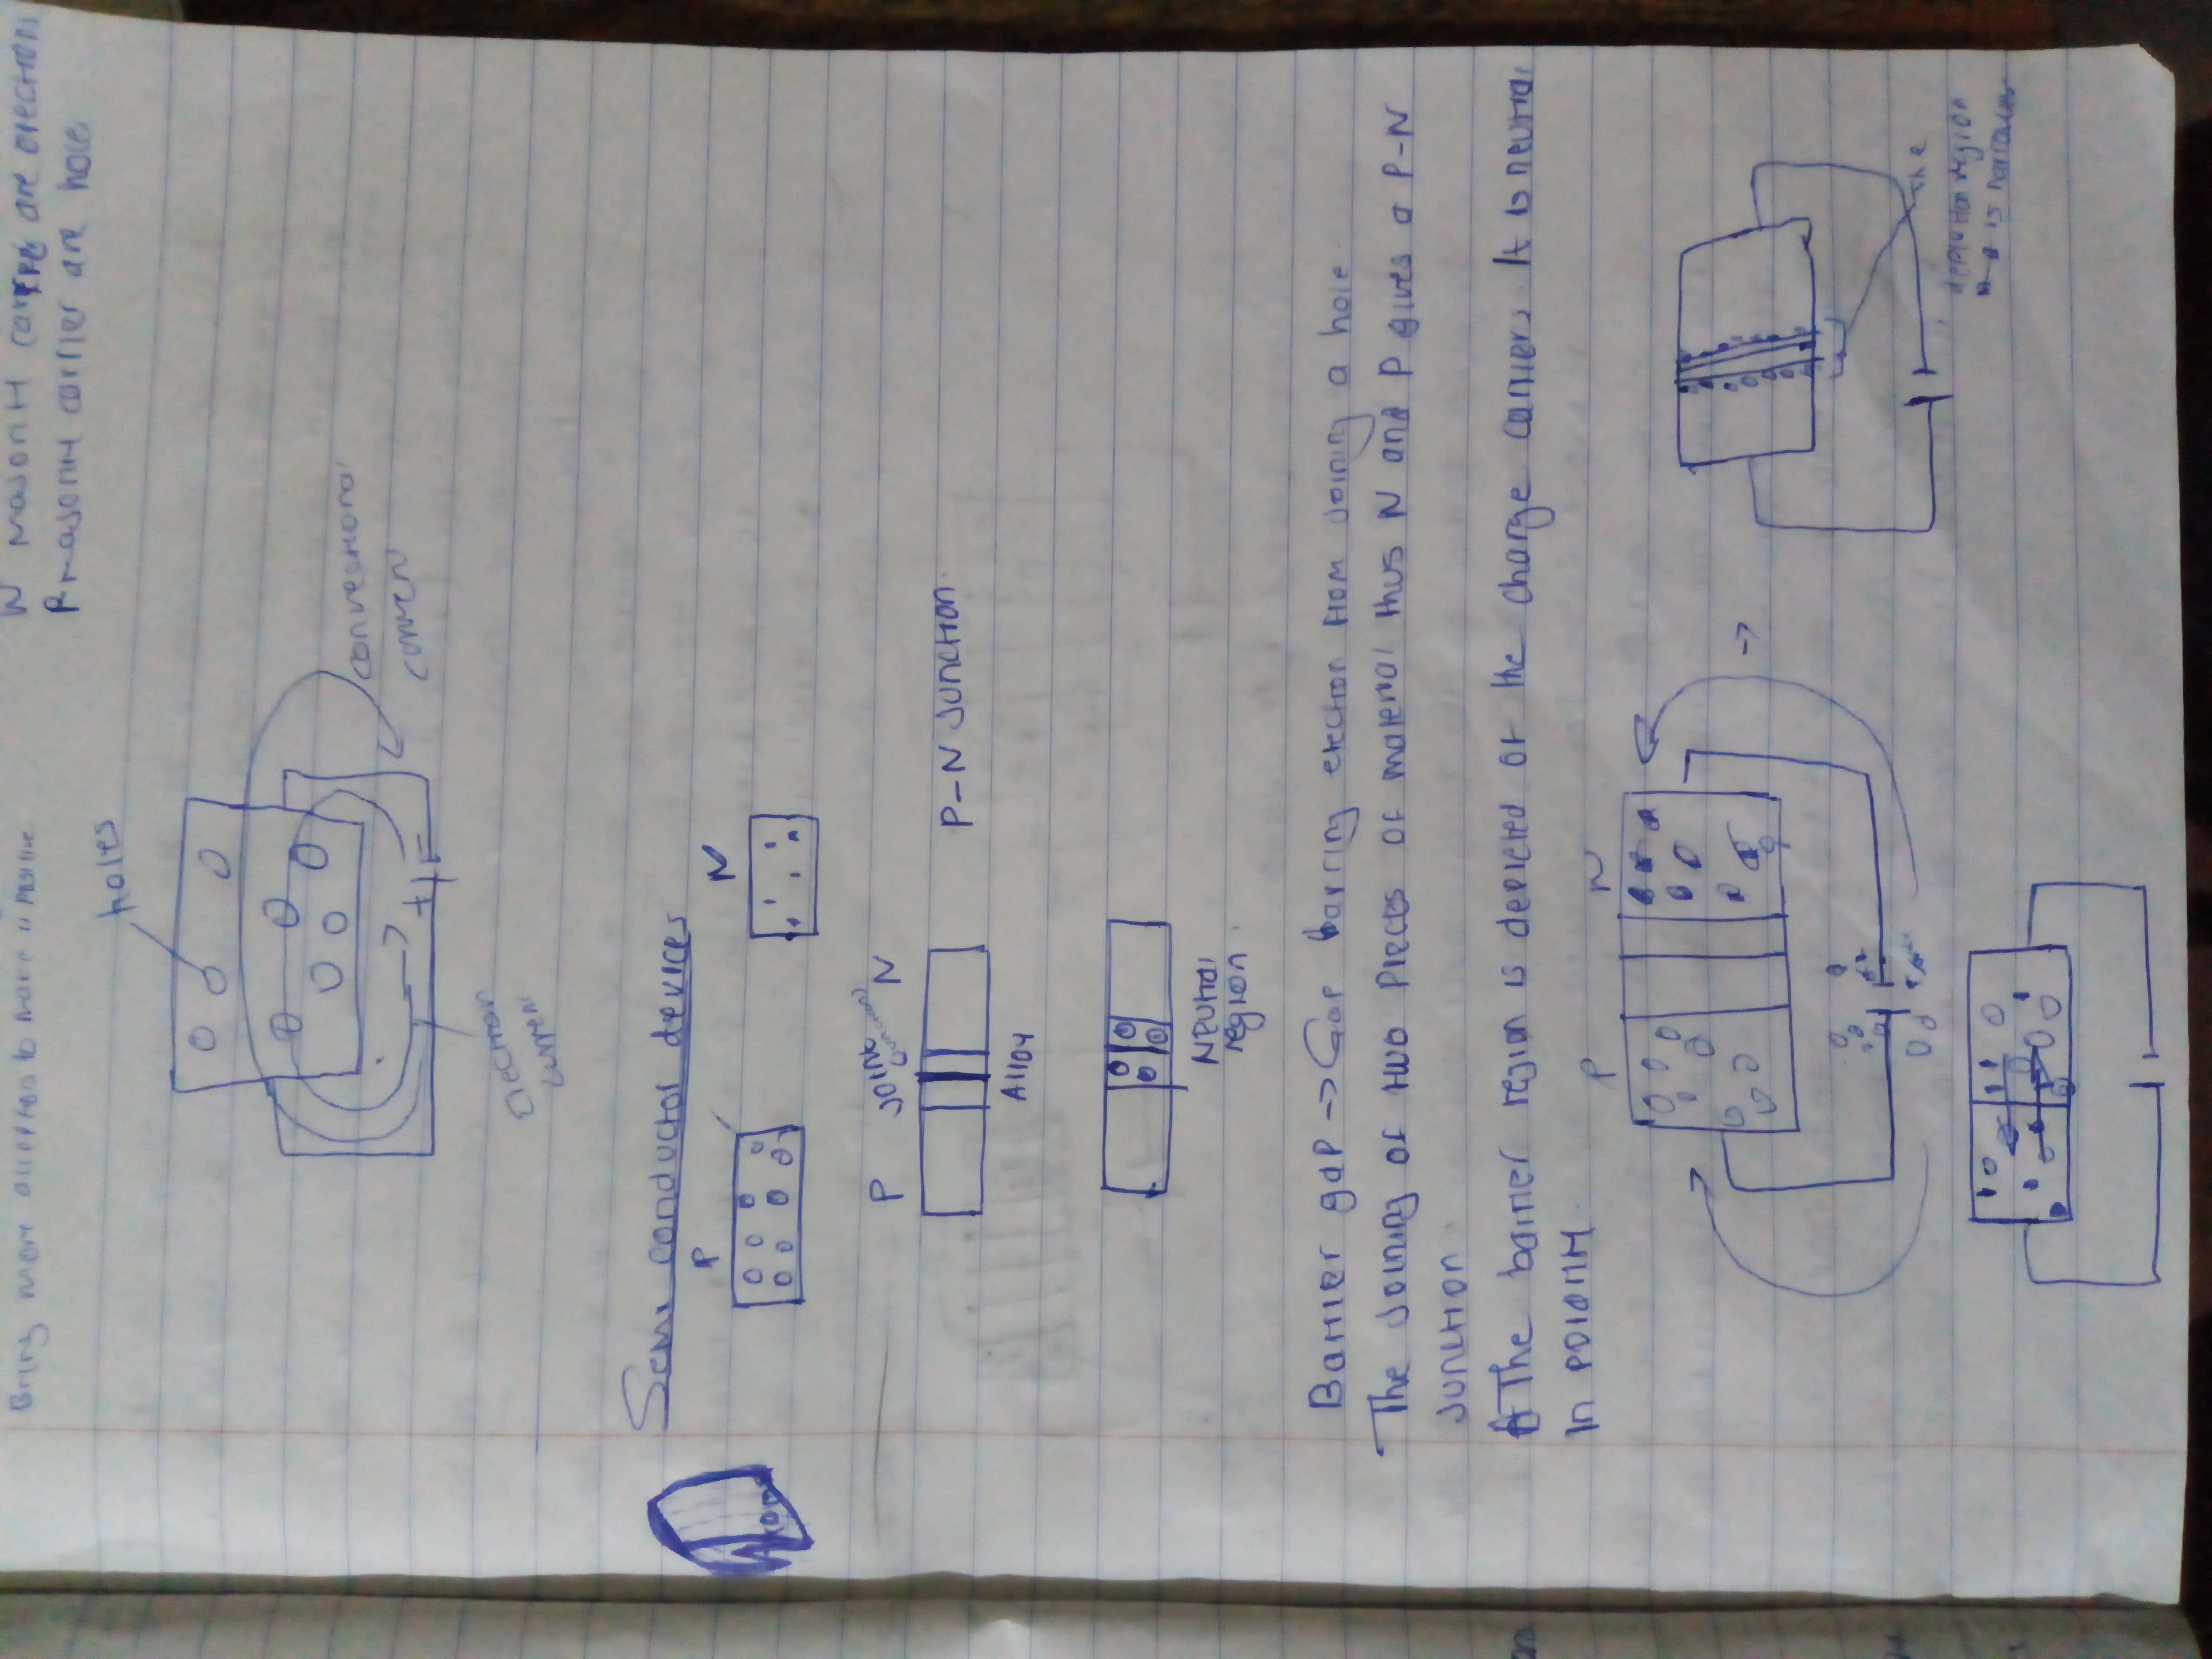 Bring more
N majority are electrons
P majority carrier are hole
holes
convectional
current
+ -
Electron
current
Semi conductor devices
P N
P Joint (junction) N
P-N Junction.
Alloy
Neutral
region.
Barrier gap -> Gap barring electron from joining a hole.
The joining of two pieces of material thus N and P gives a P-N
junction.
The barrier region is depleted of the charge carriers. It is neutral
in polarity.
P N
->
The
depletion region
is narrower